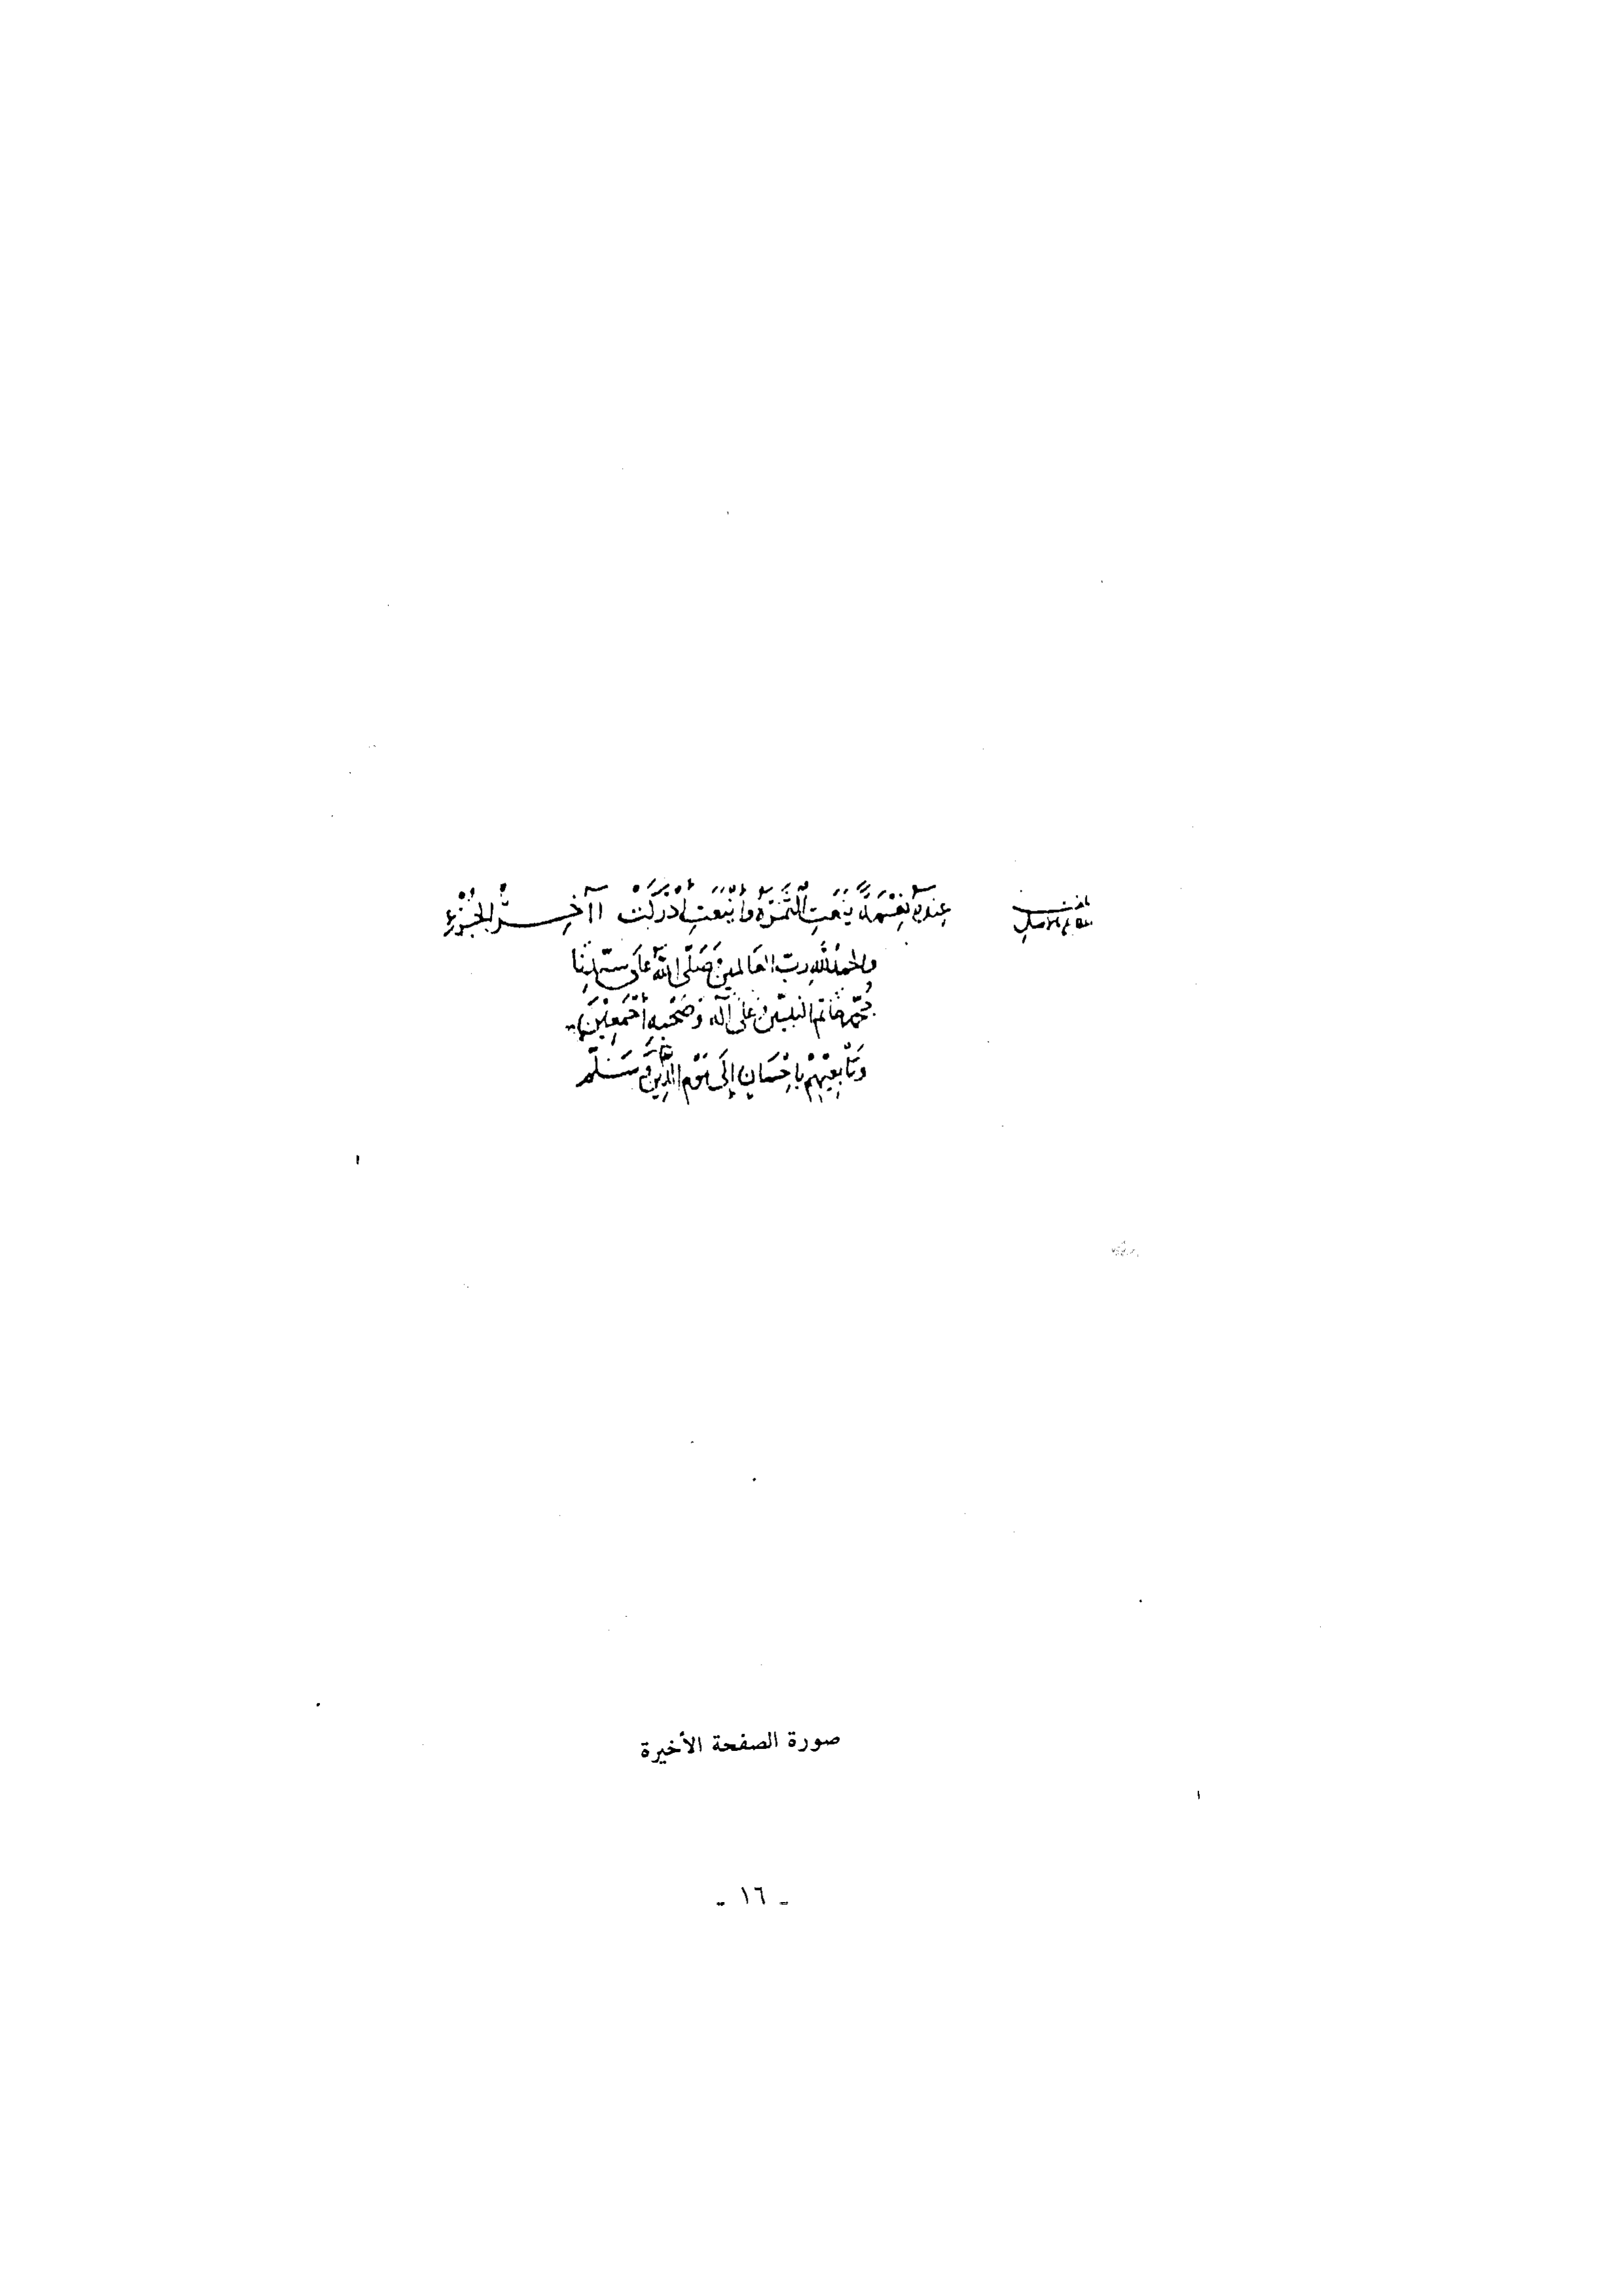 عِنْدَهُ نِعْمَةً يَنَعَتِ الثَّمَرَةُ وَأَيْنَعَتْ أَدْرَكَتْ آخِرُ الْجُزْءِ
والحمد لله رب العالمين صَلَّى الله على سيدنا
محمد خاتم النبيين وعلى آله وصحبه أجمعين
وتابعيهم بإحسان إلى يوم الدين وسلم
صورة الصفحة الأخيرة
- ١٦ -